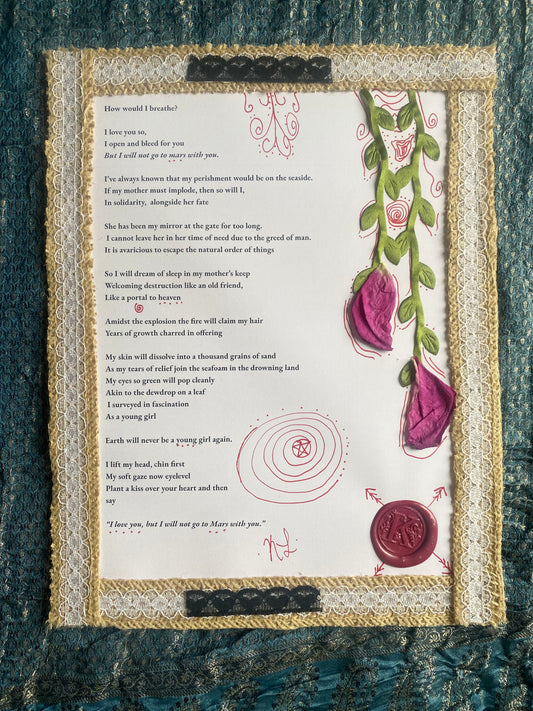 How would I breathe?
I love you so,
I open and bleed for you
But I will not go to mars with you.
I've always known that my perishment would be on the seaside.
If my mother must implode, then so will I,
In solidarity, alongside her fate
She has been my mirror at the gate for too long.
I cannot leave her in her time of need due to the greed of man.
It is avaricious to escape the natural order of things
So I will dream of sleep in my mother's keep
Welcoming destruction like an old friend,
Like a portal to heaven
Amidst the explosion the fire will claim my hair
Years of growth charred in offering
My skin will dissolve into a thousand grains of sand
As my tears of relief join the seafoam in the drowning land
My eyes so green will pop cleanly
Akin to the dewdrop on a leaf
I surveyed in fascination
As a young girl
Earth will never be a young girl again.
I lift my head, chin first
My soft gaze now eyelevel
Plant a kiss over your heart and then
say
"I love you, but I will not go to Mars with you."
KL
K